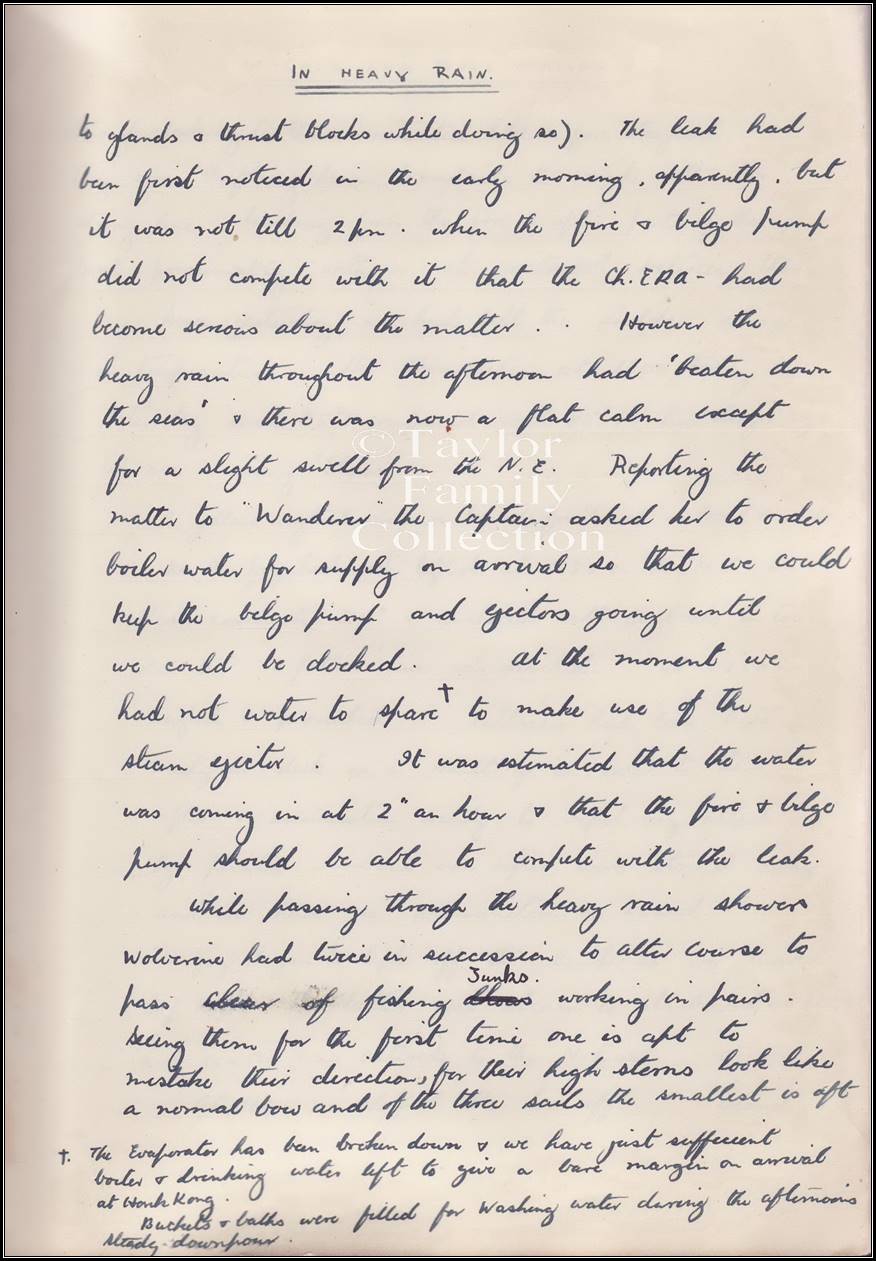 IN HEAVY RAIN.
to glands & thrust blocks while doing so). The leak had
been first noticed in the early morning, apparently, but
it was not till 2 pm. when the fire & bilge pump
did not compete with it that the Ch. ERA - had
become serious about the matter . . However the
heavy rain throughout the afternoon had 'beaten down
the seas' & there was now a flat calm except
for a slight swell from the N.E. Reporting the
matter to "Wanderer" the Captain asked her to order
boiler water for supply on arrival so that we could
keep the bilge pump and ejectors going until
we could be docked. At the moment we
had not water to spare† to make use of the
steam ejector . It was estimated that the water
was coming in at 2" an hour & that the fire & bilge
pump should be able to compete with the leak.
While passing through the heavy rain showers
Wolverine had twice in succession to alter course to
Junks.
pass of fishing working in pairs .
Seeing them for the first time one is apt to
mistake their direction, for their high sterns look like
a normal bow and of the three sails the smallest is aft
†. The Evaporator has been broken down & we have just sufficient
boiler & drinking water left to give a bare margin on arrival
at Honk Kong.
Buckets & baths were filled for washing water during the afternoons
steady downpour.
©Taylor
Family
Collection